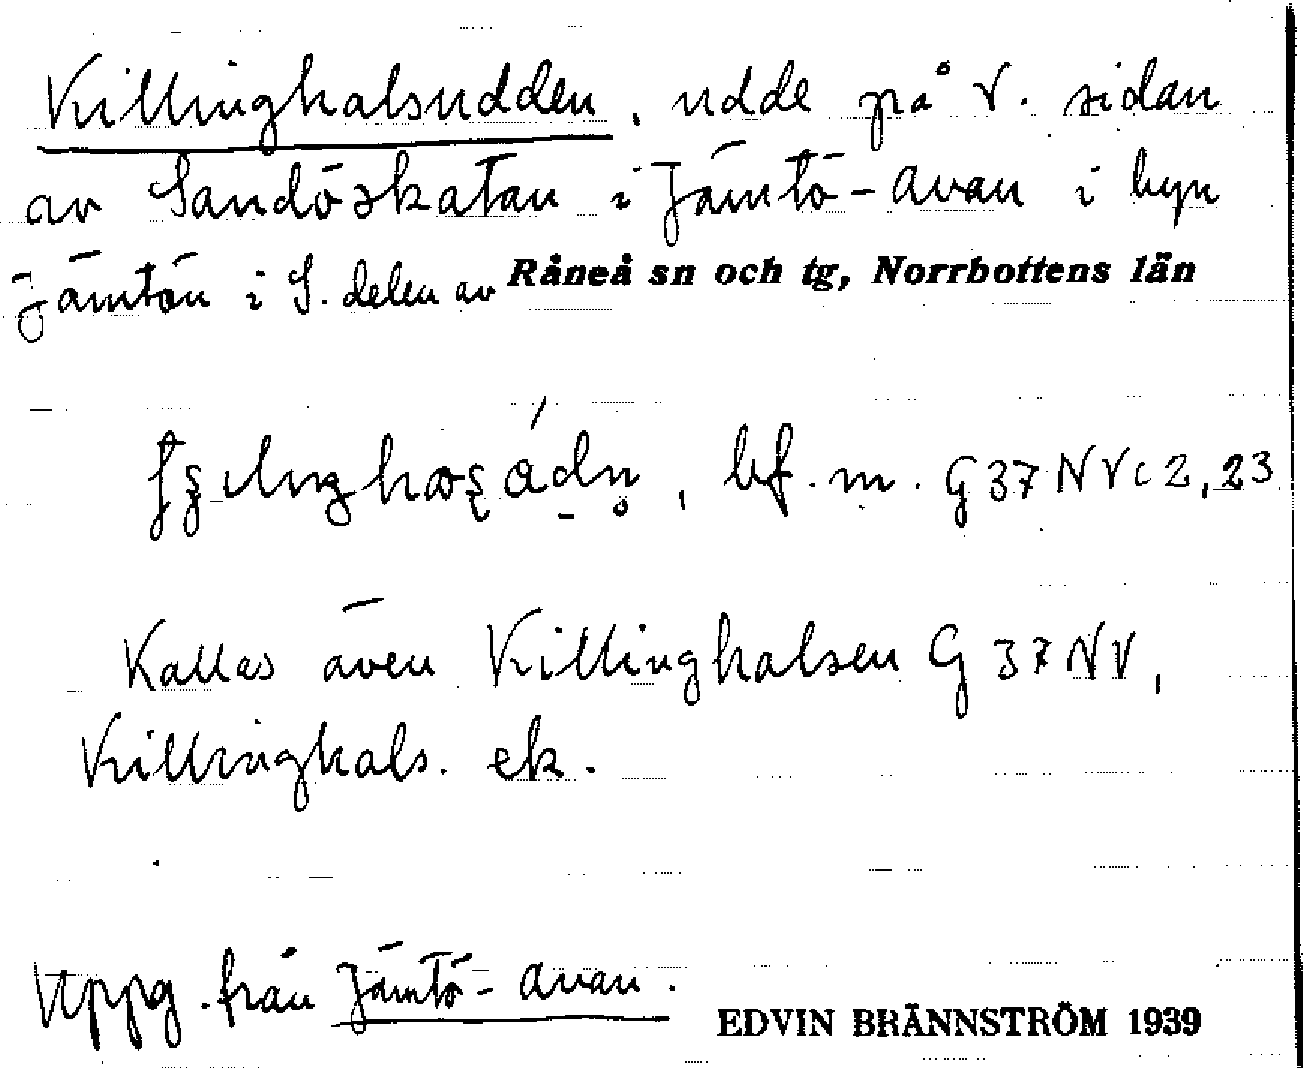 Killinghalsudden, udde på V. sidan
av Sandöskatan i Jämtö-Avan i byn
Jämtön i S. delen av Råneå sn och tg, Norrbottens län
bf. m. G37NVc2,23
Kallas även Killinghalsen G37NV,
Killinghals. ek.
Uppg. från Jämtö-Avan.
EDVIN BRÄNNSTRÖM 1939